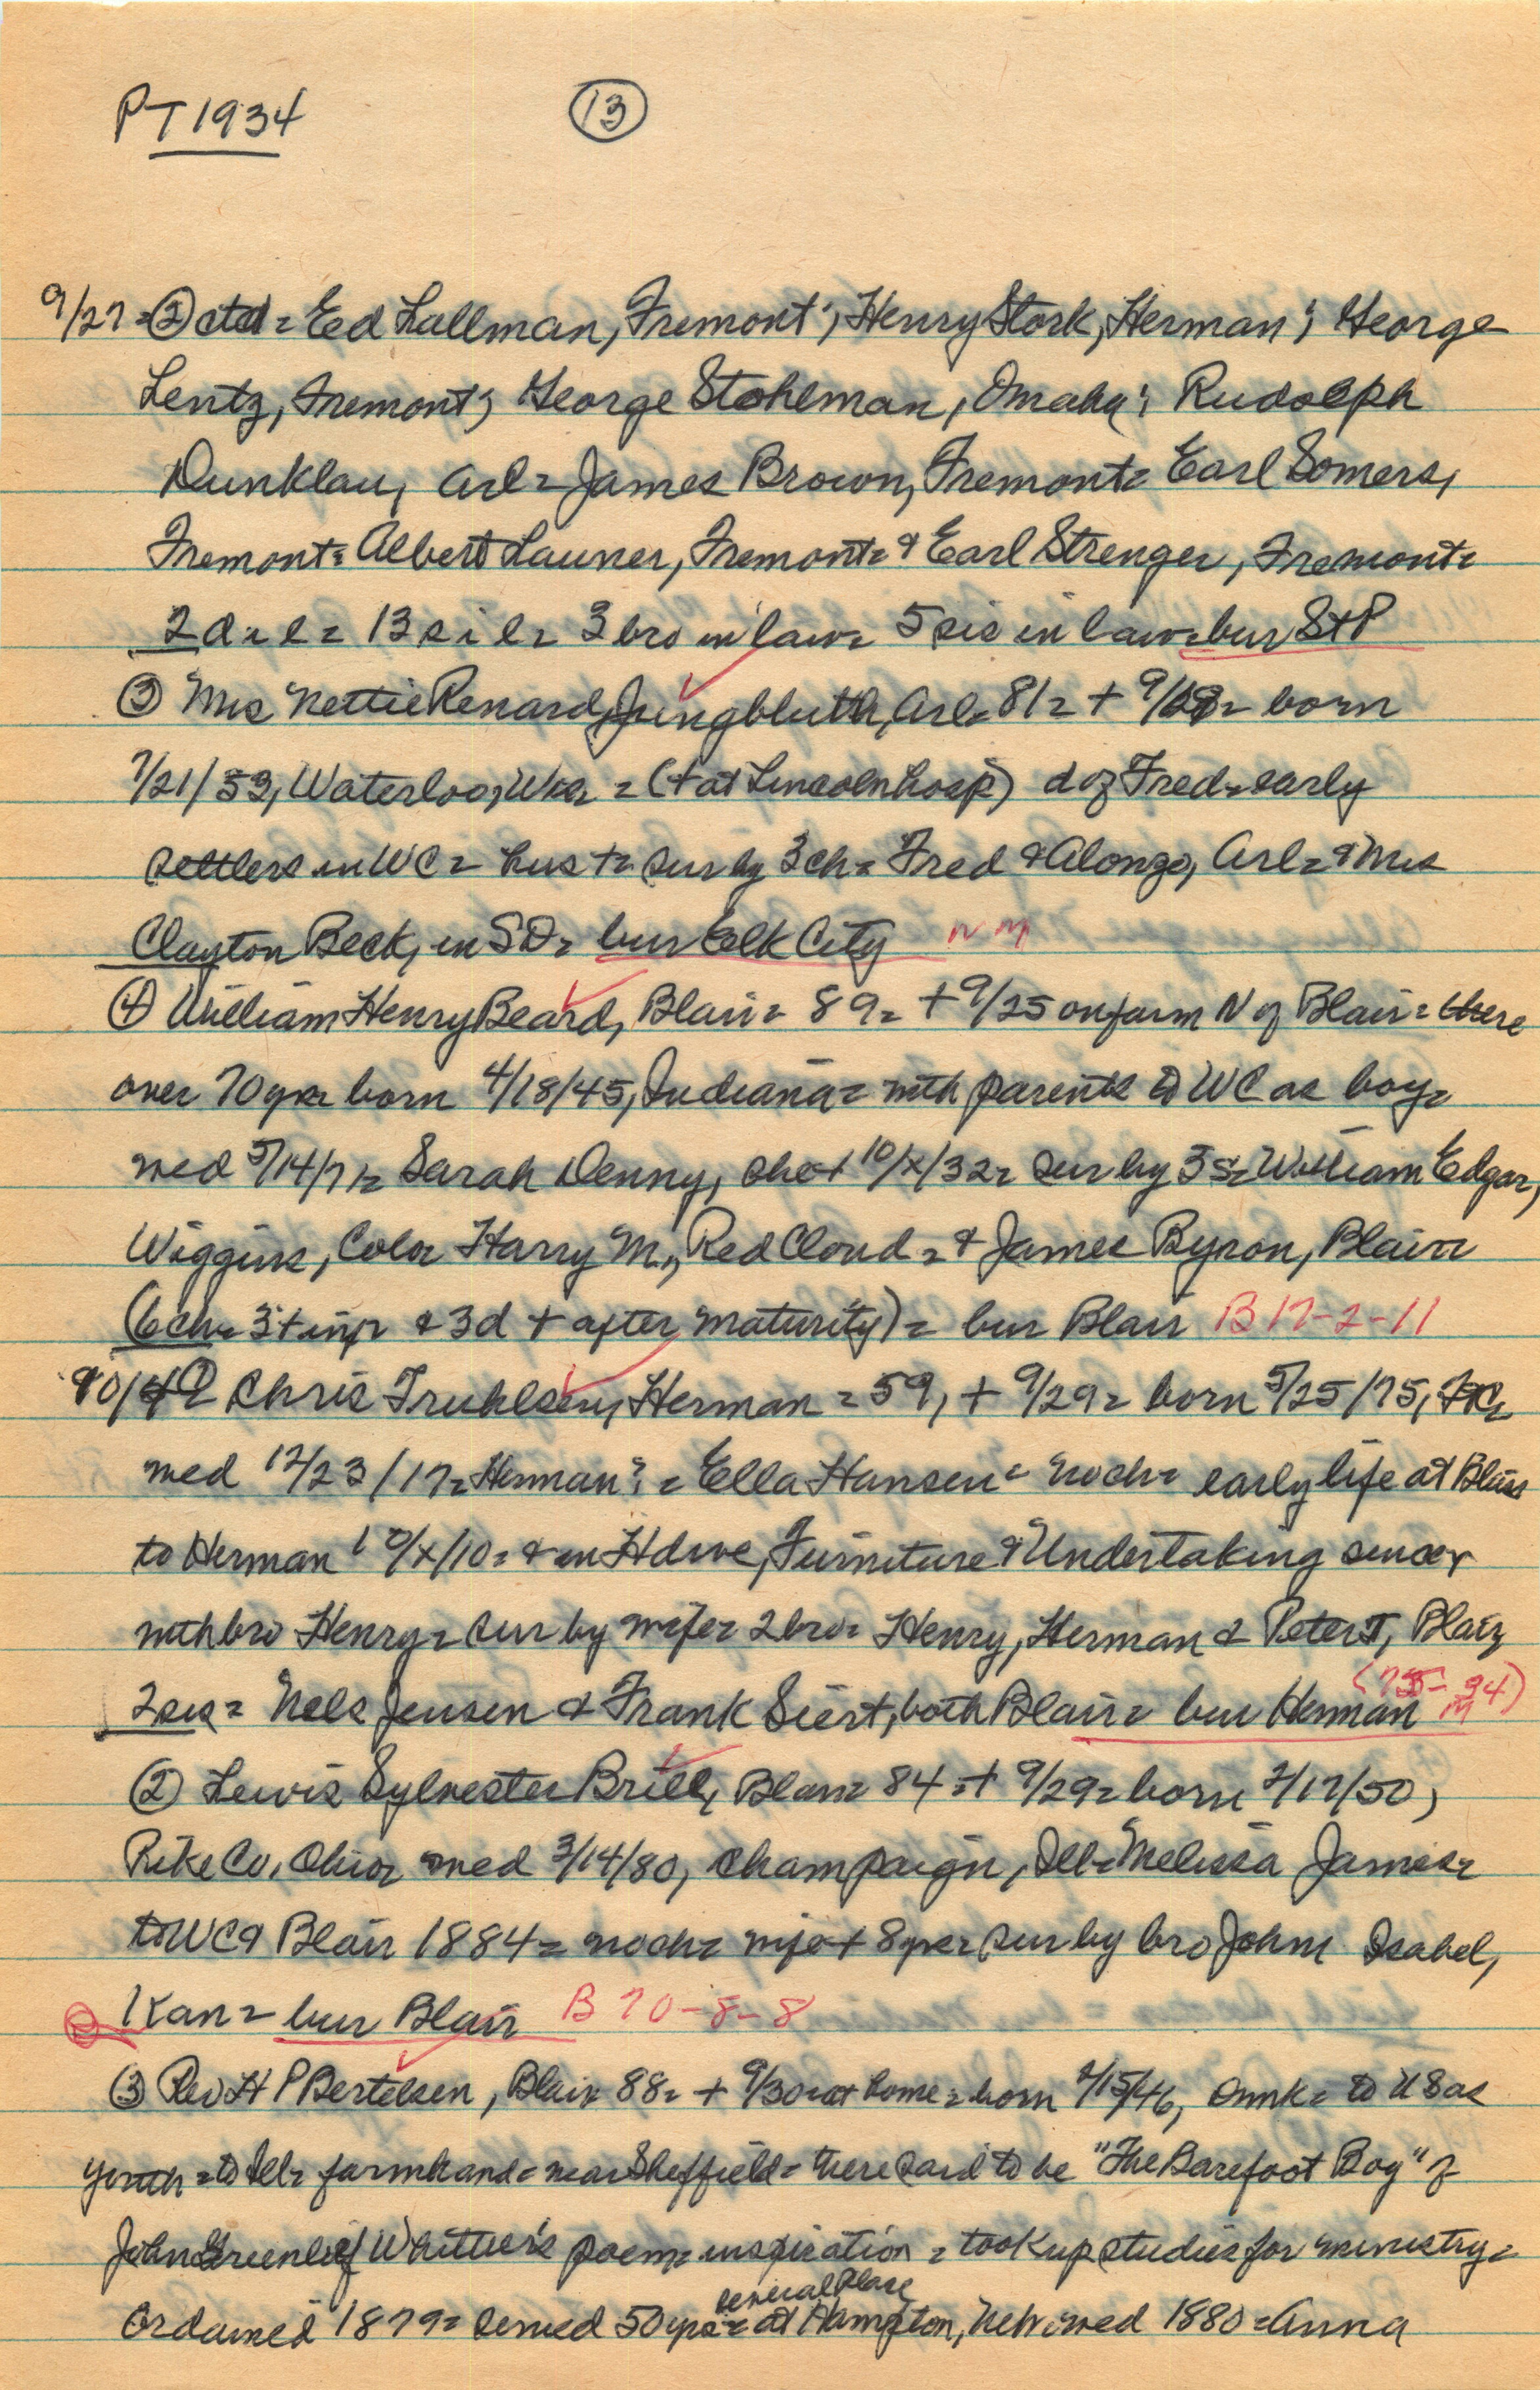 PT 1934 (13)
9/27 = (2) ctd = Ed Lallman, Fremont; Henry Stork, Herman; George
Lentz, Fremont; George Stohlman, Omaha; Rudolph
Dunklau, Arl = James Brown, Fremont = Earl Somers,
Fremont = Albert Launer, Fremont = & Earl Strenger, Fremont =
2 d i l = 13 s i l = 3 bro in law = 5 sis in law = bur St P
(3) Mrs Nettie Renard Jungbluth, Arl = 81 = + 9/19 = born
7/21/53, Waterloo, Wis = (+ at Lincoln hosp) d of Fred = early
settlers in WC = hus + = sur by 3 ch = Fred & Alonzo, Arl = & Mrs
Clayton Beck, in SD = bur Elk City NM
(4) William Henry Beard, Blair = 89 = + 9/25 on farm N of Blair = there
over 70 yrs = born 4/18/45, Indiana = with parents to WC as boy =
wed 5/14/71 = Sarah Denny, she + 10/x/32 = sur by 3 s = William Edgar,
Wiggins, Colo = Harry M., Red Cloud = & James Byron, Blair =
(6 ch = 3 + inf = & 3 d + after maturity) = bur Blair B 17-2-11
10/4 (1) Chris Truhlsen, Herman = 59, + 9/29 = born 5/25/75,
wed 12/23/17 = Herman? = Ella Hansen = no ch = early life at Blair
to Herman 10/x/10 = & in Hdwe, Furniture & Undertaking since,
with bro Henry = sur by wife = 2 bro = Henry, Herman & Peter T, Blair
2 sis = Nels Jensen & Frank Siert, both Blair = bur Herman (75-34) M
(2) Lewis Sylvester Brill, Blair = 84 = + 9/29 = born 2/17/50,
Pike Co, Ohio = wed 3/14/80, Champaign, Ill = Melissa James =
to WC & Blair 1884 = no ch = wife + 8 yrs = sur by bro John Isabel,
Kan = bur Blair B 70-8-8
(3) Rev H P Bertelsen, Blair = 88 = + 9/30 at home = born 2/15/46, Dmk = to US as
youth = to Ill = farmhand = near Sheffield = there said to be "The Barefoot Boy" of
John Greenleif Whittier's poem = inspiration = took up studies for ministry =
several place
Ordained 1879 = served 50 yrs = at Hampton, Neb = wed 1880 = Anna